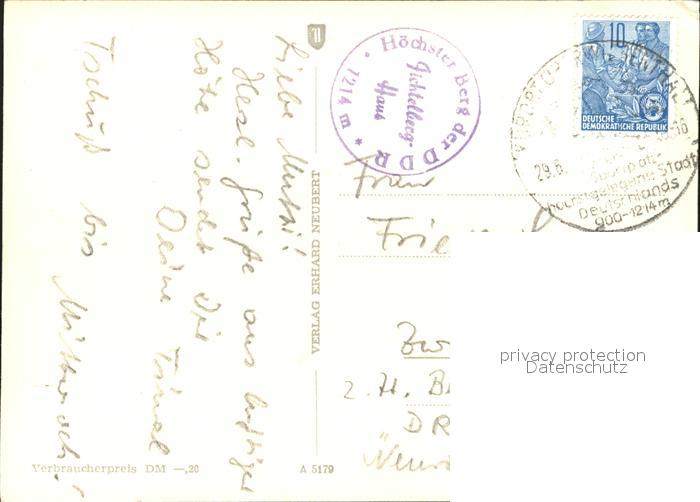 Liebe Mutti!
Herzl. Grüße aus luftiger
Höhe sendet Dir
Deine
Tschüß bis Mittwoch!
Verbraucherpreis DM —,20
A 5179
VERLAG ERHARD NEUBERT
Höchster Berg der DDR
Fichtelberg-
Haus
* 1214 m *
10
DEUTSCHE
DEMOKRATISCHE REPUBLIK
29.8.
höchstgelegene Stadt
Deutschlands
900-1214m
Frau
Zw
z. H.
DR
privacy protection
Datenschutz